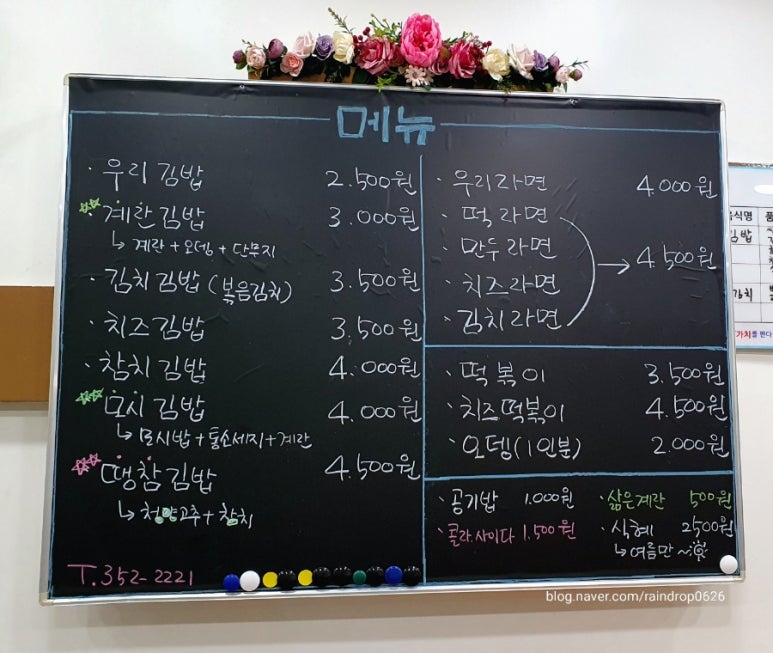 메뉴
· 우리김밥 2.500원
· 계란김밥 3.000원
↳ 계란 + 오뎅 + 단무지
· 김치김밥 (볶음김치) 3.500원
· 치즈김밥 3.500원
· 참치김밥 4.000원
· 모시김밥 4.000원
↳ 모시밥 + 통소세지 + 계란
· 땡참김밥 4.500원
↳ 청양고추 + 참치
T.352-2221
· 우리라면 4.000원
· 떡라면
· 만두라면
· 치즈라면
· 김치라면
→ 4.500원
· 떡볶이 3.500원
· 치즈떡볶이 4.500원
· 오뎅(1인분) 2.000원
· 공기밥 1.000원
· 콜라사이다 1.500원
· 삶은계란 500원
· 식혜 2500원
↳ 여름만~
김밥
김치
blog.naver.com/raindrop0626